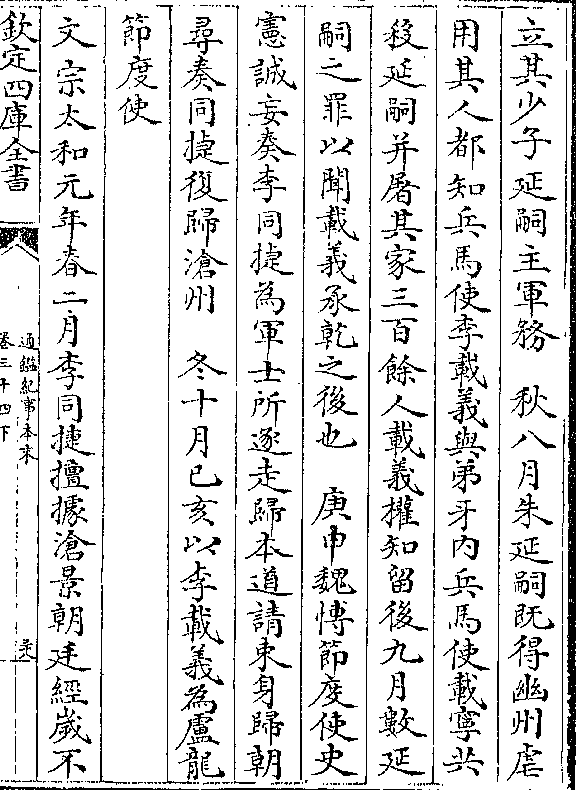 立其少子延嗣主軍務　秋八月朱延嗣既得幽州虐
用其人都知兵馬使李載義與弟牙内兵馬使載寧共
殺延嗣并屠其家三百餘人載義權知留後九月數延
嗣之罪以聞載義承乾之後也　庚申魏博節度使史
憲誠妄奏李同捷為軍士所逐走歸本道請束身歸朝
尋奏同捷復歸滄州　冬十月已亥以李載義為盧龍
節度使
文宗太和元年春二月李同捷擅據滄景朝廷經歲不
欽定四庫全書
通鑑紀事本末
卷三十四下